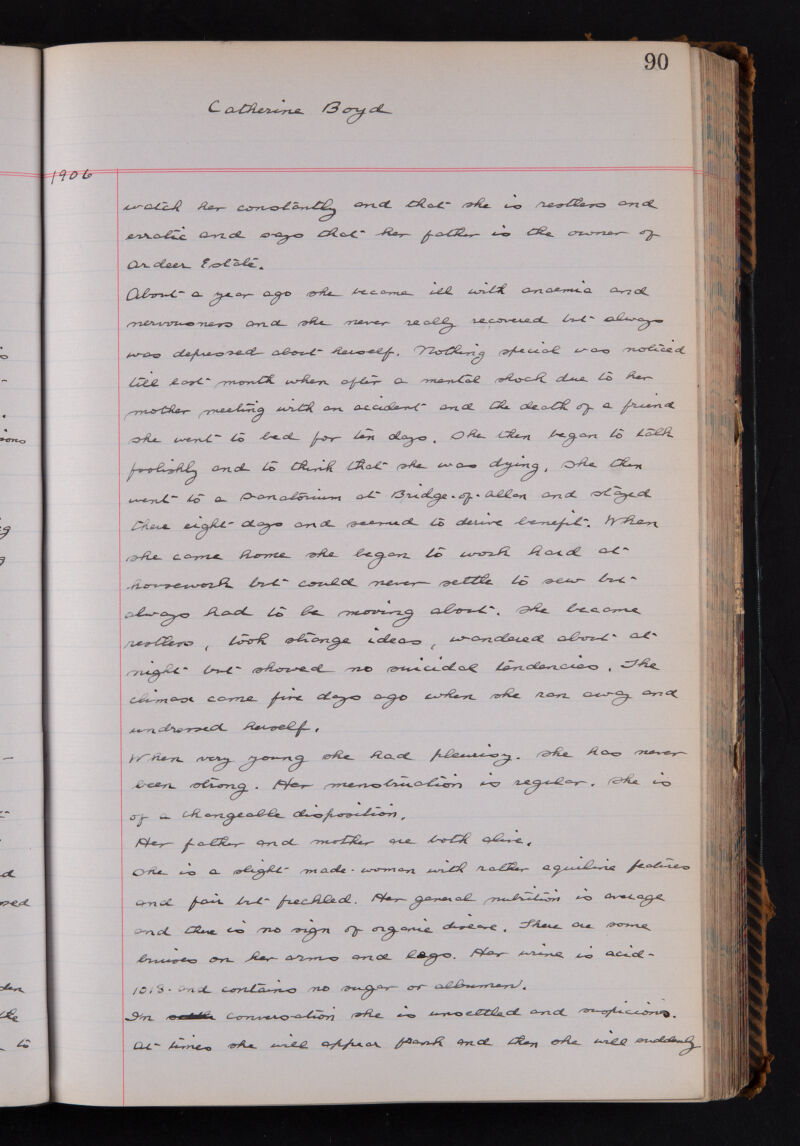 90
Catherine Boyd
1906
watch her constantly and that she is restless and
erratic and says that her father is the owner of
Ardeer Estate.
About a year ago she became ill with anaemia and
nervousness and she never really recovered but always
was depressed about herself. Nothing special was noticed
till last month when after a mental shock due to her
mother meeting with an accident and the death of a friend
she went to bed for ten days. She then began to talk
foolishly and to think that she was dying. She then
went to a Sanatorium at Bridge-of-Allan and stayed
there eight days and seemed to derive benefit. When
she came home she began to work hard at
housework but could never settle to sew but
always had to be moving about. She became
restless, took strange ideas, wandered about at
night but showed no suicidal tendencies. The
climax came five days ago when she ran away and
undressed herself.
When very young she had pleurisy. She has never
been strong. Her menstruation is regular. She is
of a changeable disposition.
Her father and mother are both alive.
She is a slight made woman with rather aquiline features
and fair but freckled. Her general nutrition is average
and there is no sign of organic disease. There are some
bruises on her arms and legs. Her urine is acid -
1018. and contains no sugar or albumen.
In conversation she is unsettled and suspicious.
At times she will appear frank and then she will suddenly